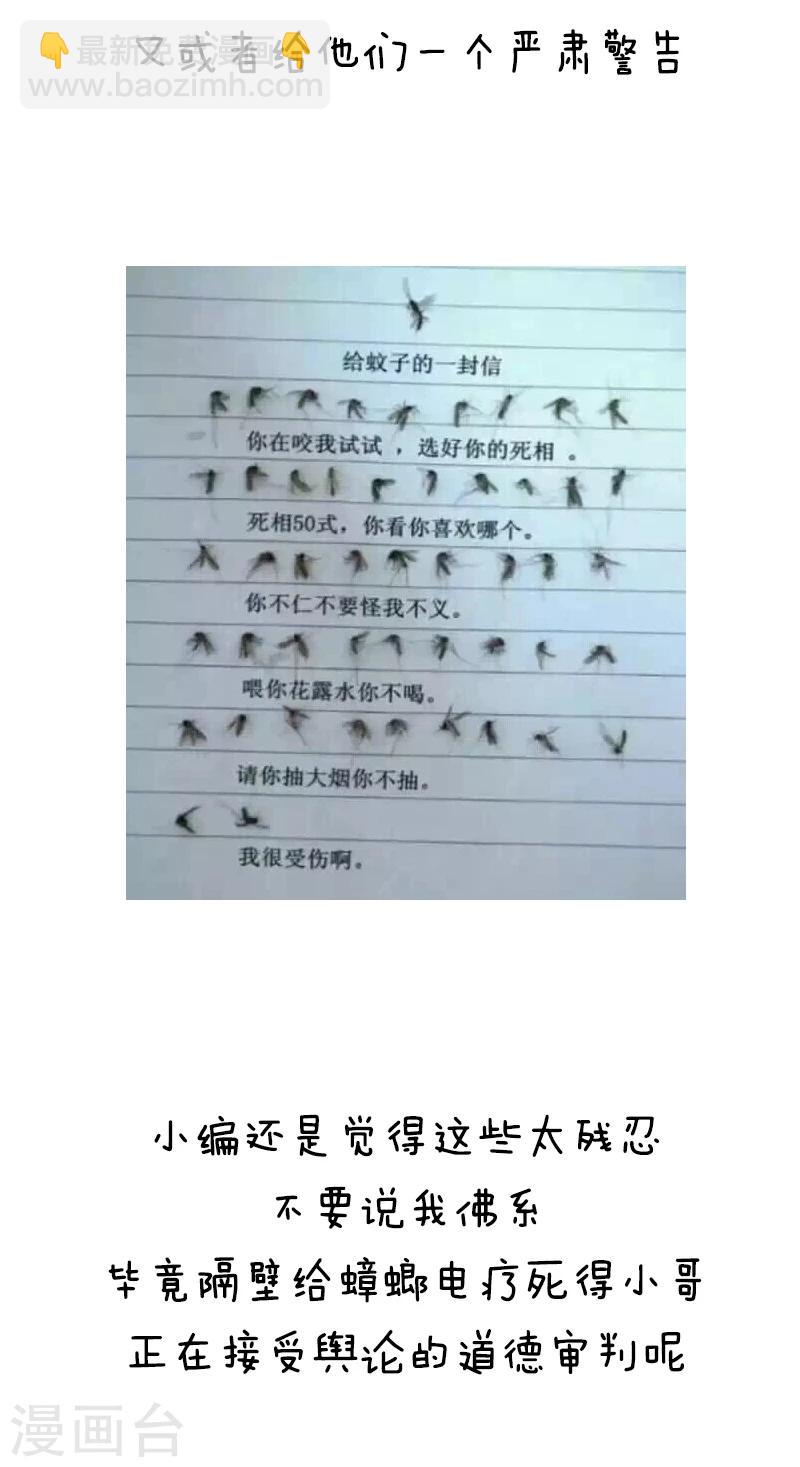 又或者给他们一个严肃警告
👇最新免费漫画👇
www.baozimh.com
给蚊子的一封信
你在咬我试试，选好你的死相。
死相50式，你看你喜欢哪个。
你不仁不要怪我不义。
喂你花露水你不喝。
请你抽大烟你不抽。
我很受伤啊。
小编还是觉得这些太残忍
不要说我佛系
毕竟隔壁给蟑螂电疗死得小哥
正在接受舆论的道德审判呢
漫画台